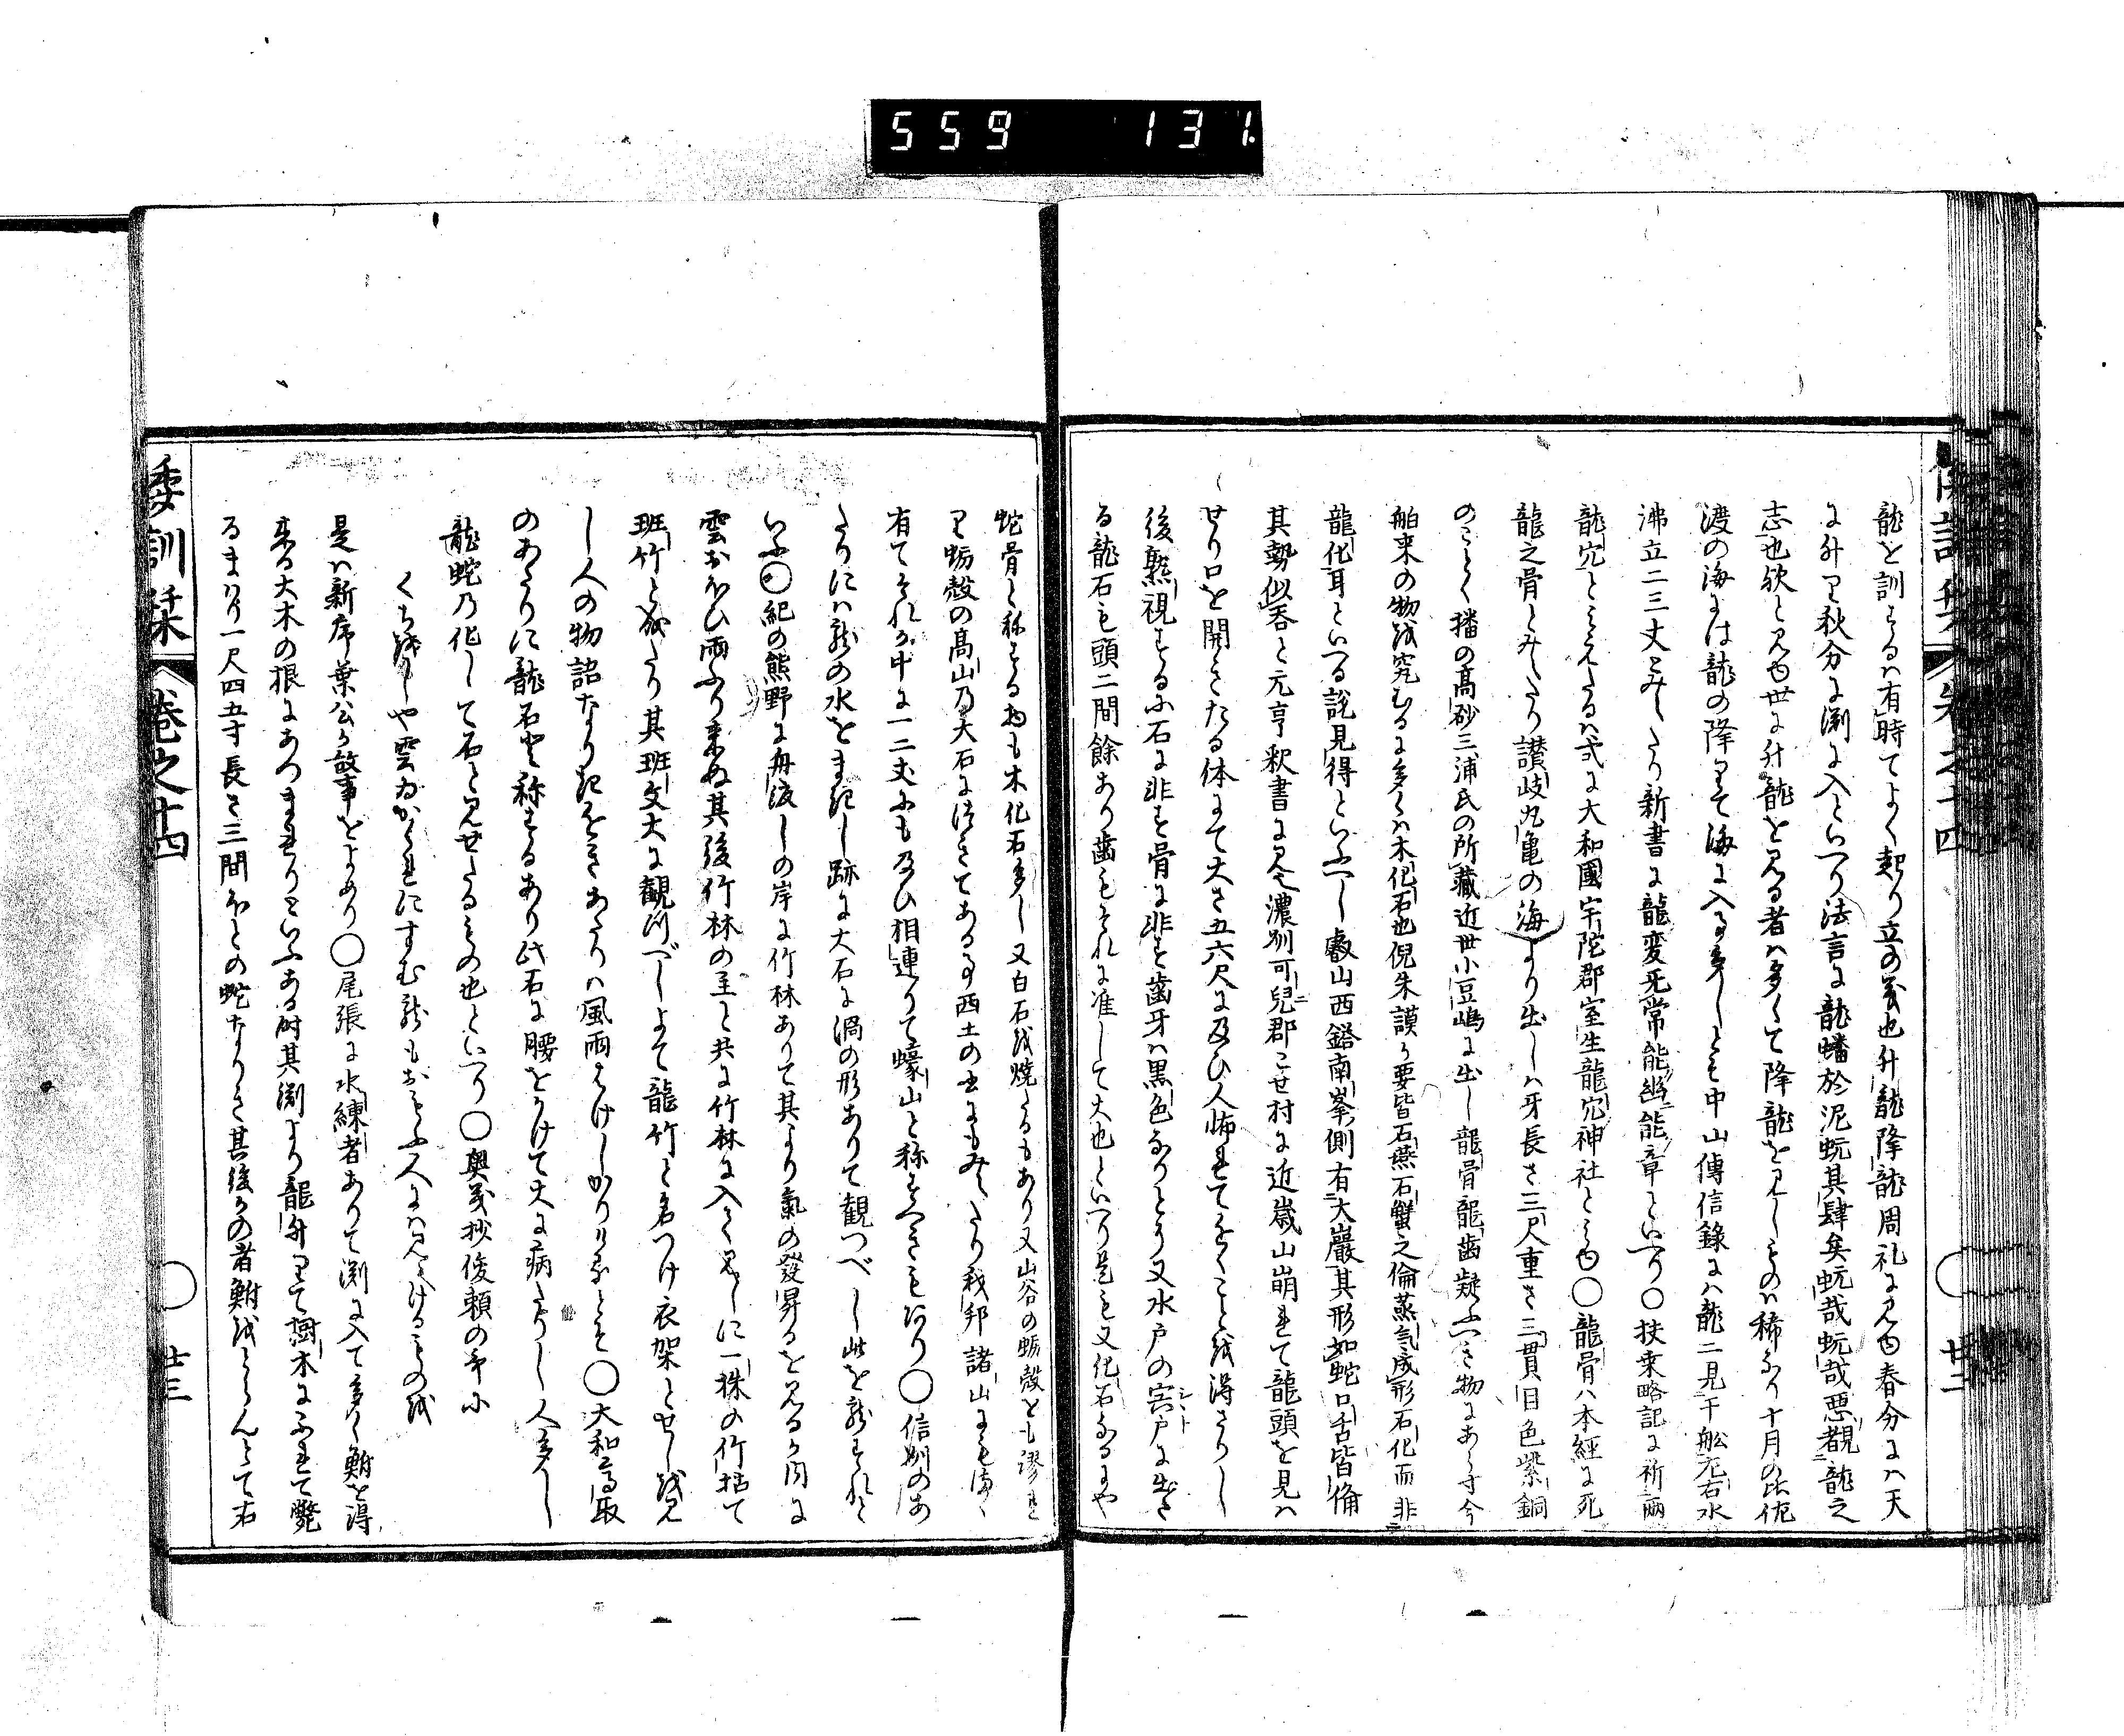 559 131
龍を訓するは有時てよく起り立の義也升龍降龍周礼に見ゆ春分には天
に升り秋分に淵に入といへり法言に龍蟠於泥蚖其肆矣蚖哉蚖哉悪覩龍之
志也欤と見ゆ世に升龍を見る者は多くて降龍を見しものは稀なり十月の比佐
渡の海には龍の降りて海に入る事多しとそ中山傳信錄には龍二見于舩左右水
沸立二三丈とみえたり新書に龍変无常能幽能章といへり○扶桒略記に祈雨
龍穴とみえたるは式に大和國宇陀郡室生龍穴神社とみゆ○龍骨ハ本經に死
龍之骨とみえたり讃岐丸亀の海より出しは牙長さ三尺重さ三貫目色紫銅
のことく播の髙砂三浦氏の所藏近世小豆嶋に出し龍骨龍歯疑ふへき物にあらす今
舶来の物を究むるに多くは木化石也倪朱謨か要皆石燕石蟹之倫蒸氣成形石化而非
龍化耳といへる説見得といふへし叡山西谿南峯側有大巖其形如蛇口舌皆備
其勢似呑と元亨釈書に見え濃州可兒郡こせ村に近歳山崩れて龍頭を見は
せり口を開きたる体にて大さ五六尺に及ひ人怖れてをくことを得さりし
後熟視するに石に非す骨に非す歯牙は黒色なりとそ又水戸の宍戸に出さ
る龍石も頭二間餘あり歯もそれに准して大也といへり是も又化石なるにや
蛇骨と称する物も木化石多し又白石を焼たるもあり又山谷の蛎殻をも謬れ
り蛎殻の髙山乃大石に付きてある事西土の書にもみえたり我邦諸山にも傳へ
有てそれか中に一二丈にも及ひ相連りて蠔山と称すへきもあり○信州のあ
たりには龍の水をまきし跡に大石に渦の形ありて観つへし此を龍すれと
いふ○紀の熊野に舟渡しの岸に竹林ありて其より氣の發昇るを見るか内に
雲おほひ雨ふり来ぬ其後竹林の主と共に竹林に入て見しに一株の竹枯て
斑竹と成たり其斑文大に観つべしよて龍竹と名つけ衣架とせしを見
し人の物語なり凡そきあたりは風雨はけしかりけるとそ○大和高取
のあたりに龍石と称するあり此石に腰をかけて大に病たりし人多し
龍蛇乃化して石と見せたるもの也といへり○奥義抄俊頼の哥に
くち惜しや雲ゐかくれにすむ龍もおもふ人には見えけるものを
是は新序葉公か故事をよめり○尾張に水練者ありて淵に入て多く鮒を得
来る大木の根にあつまれりといふある時其淵より龍升りて樹木にふれて斃
るまはり一尺四五寸長さ三間ほとの蛇なりき其後かの者鮒をとらんとて右
倭訓栞 卷之十四 廿三
卷之十四 廿二